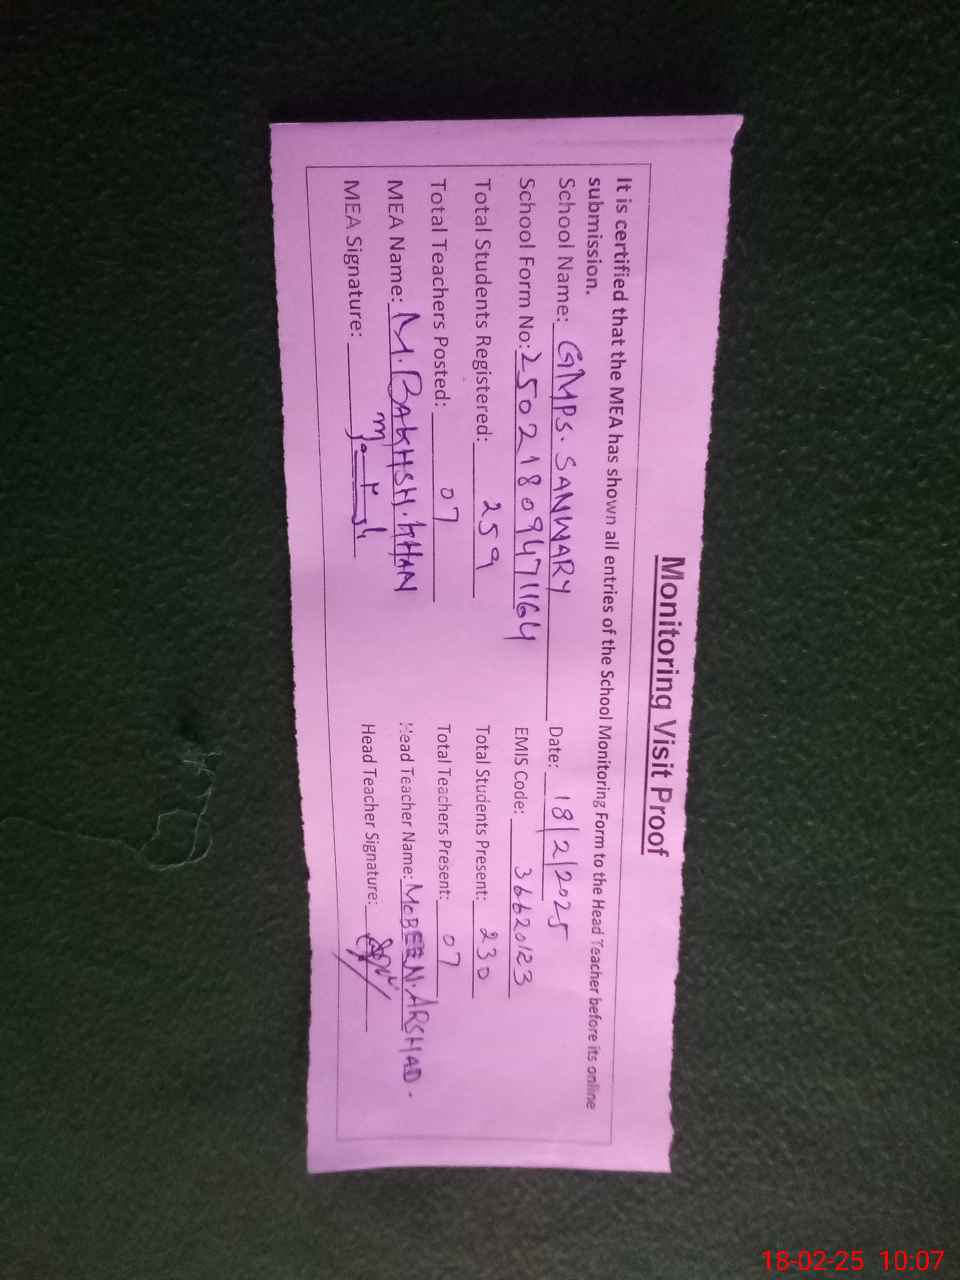 Monitoring Visit Proof
It is certified that the MEA has shown all entries of the School Monitoring Form to the Head Teacher before its online
submission.
School Name: GMPS. SANWARY Date: 18/2/2025
School Form No: 250218094711164 EMIS Code: 36620123
Total Students Registered: 259 Total Students Present: 230
Total Teachers Posted: 07 Total Teachers Present: 07
MEA Name: M. BAKHSH. KHAN Head Teacher Name: MOBEEN. ARSHAD.
MEA Signature: Head Teacher Signature:
18-02-25 10:07